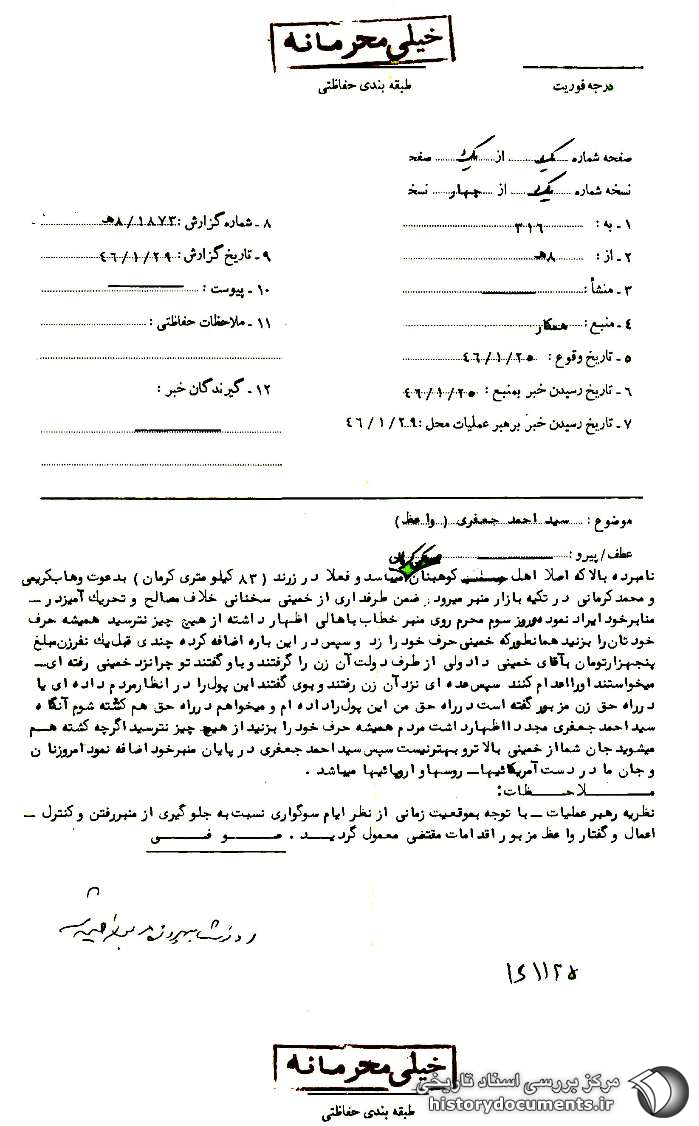 خیلی محرمانه
طبقه بندی حفاظتی
درجه فوریت
صفحه شماره یک از یک صفحه
نسخه شماره یک از چهار نسخه
۱ ـ به : ۳۱۶
۲ ـ از : ۸هـ
۳ ـ منشأ :
۴ ـ منبع : همکار
۵ ـ تاریخ وقوع : ۴۶/۱/۲۵
۶ ـ تاریخ رسیدن خبر بمنبع : ۴۶/۱/۲۵
۷ ـ تاریخ رسیدن خبر برهبر عملیات محل : ۴۶/۱/۲۹
۸ ـ شماره گزارش : ۸/۱۸۷۳هـ
۹ ـ تاریخ گزارش : ۴۶/۱/۲۹
۱۰ ـ پیوست :
۱۱ ـ ملاحظات حفاظتی :
۱۲ ـ گیرندگان خبر :
موضوع : سید احمد جعفری ( واعظ )
عطف / پیرو :
نامبرده بالا که اصلا اهل کوهبنان میباسد و فعلا در زرند ( ۸۳ کیلو متری کرمان ) بدعوت وهاب کریمی
و محمد کرمانی در تکیه بازار منبر میرود. ضمن طرفداری از خمینی سخنانی خلاف مصالح و تحریك آمیز در ـ
منابر خود ایراد نموده روز سوم محرم روی منبر خطاب باهالی اظهار داشته از هیچ چیز نترسید همیشه حرف
خودتان را بزنید همانطور که خمینی حرف خود را زد و سپس در این باره اضافه کرده چندی قبل یك نفر زن مبلغ
پنجهزار تومان بآقای خمینی داد ولی از طرف دولت آن زن را گرفتند و باو گفتند تو چرا نزد خمینی رفته ای ـ
میخواستند او را اعدام کنند سپس عده ای نزد آن زن رفتند و بوی گفتند این پول را در انظار مردم داده ای یا
در راه حق زن مزبور گفته است در راه حق من این پول را داده ام و میخواهم در راه حق هم کشته شوم آنگاه
سید احمد جعفری مجددا اظهار داشت مردم همیشه حرف خود را بزنید از هیچ چیز نترسید اگرچه کشته هم
میشوید جان شما از خمینی بالاتر و بهتر نیست سپس سید احمد جعفری در پایان منبر خود اضافه نمود امروز نان
و جان ما در دست آمریکائیها ـ روسها و اروپائیها میباشد .
مـــلاحـظـــات :
نظریه رهبر عملیات ـ با توجه بموقعیت زمانی از نظر ایام سوگواری نسبت به جلو گیری از منبر رفتن و کنترل ـ
اعمال و گفتار واعظ مزبور اقدامات مقتضی معمول گردید . صـوفـی
خیلی محرمانه
طبقه بندی حفاظتی
مرکز بررسی اسناد تاریخی
historydocuments.ir